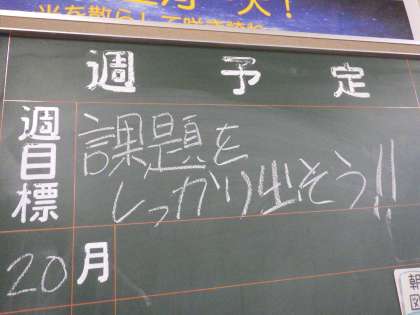 火を散らして咲き誇れ
週予定
週目標
課題を
しっかり出そう!!
20月
朝